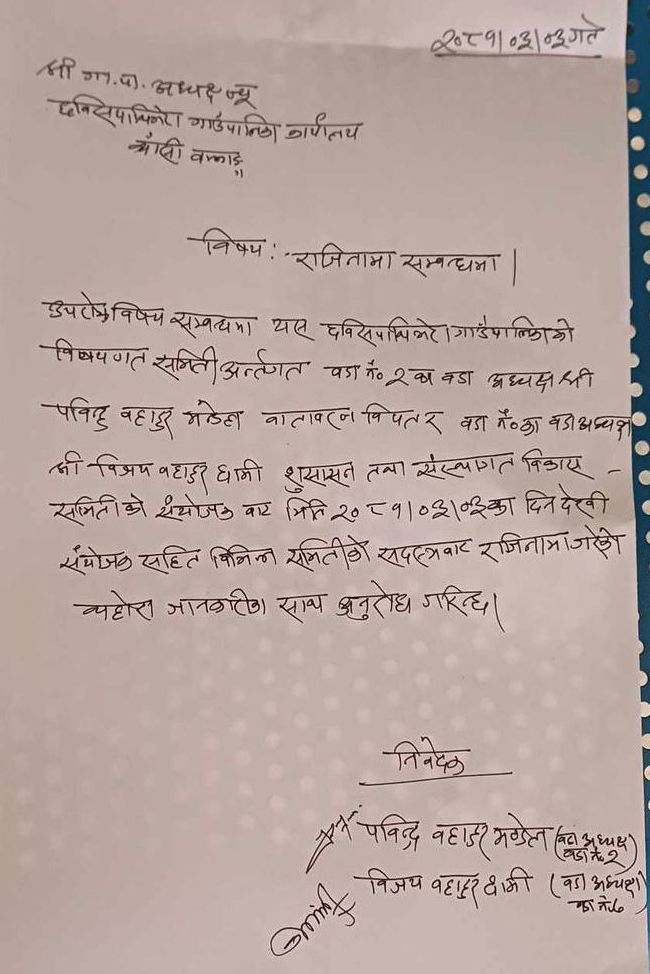 २०८१।०३।०३गते
श्री गा.पा. अध्यक्ष ज्यू
छविसपाथिभेरा गाउँपालिका कार्यालय
विषय: - राजिनामा सम्बन्धमा।
उपरोक्त विषय सम्बन्धमा यस छविसपाथिभेरा गाउँपालिकाको
विषयगत समिती अर्न्तगत वडा नं. २ का वडा अध्यक्ष श्री
पविन्द्र वहादुर वातावरन विपत र वडा नं. ७ का वडा अध्यक्ष
श्री विजय वहादुर धामी शुसासन तथा संस्थागत विकास -
समितीको संयोजक वाट मिति २०८१।०३।०३ का दिन देखी
संयोजक सहित विभिन्न समितीको सदस्यवाट राजिनामा गरेको
व्यहोरा जानकारीका साथ अनुरोध गरिन्छ।
निवेदक
पविन्द्र वहादुर (वडा अध्यक्ष)
वडा नं. २
विजय वहादुर धामी (वडा अध्यक्ष)
वडा नं. ७